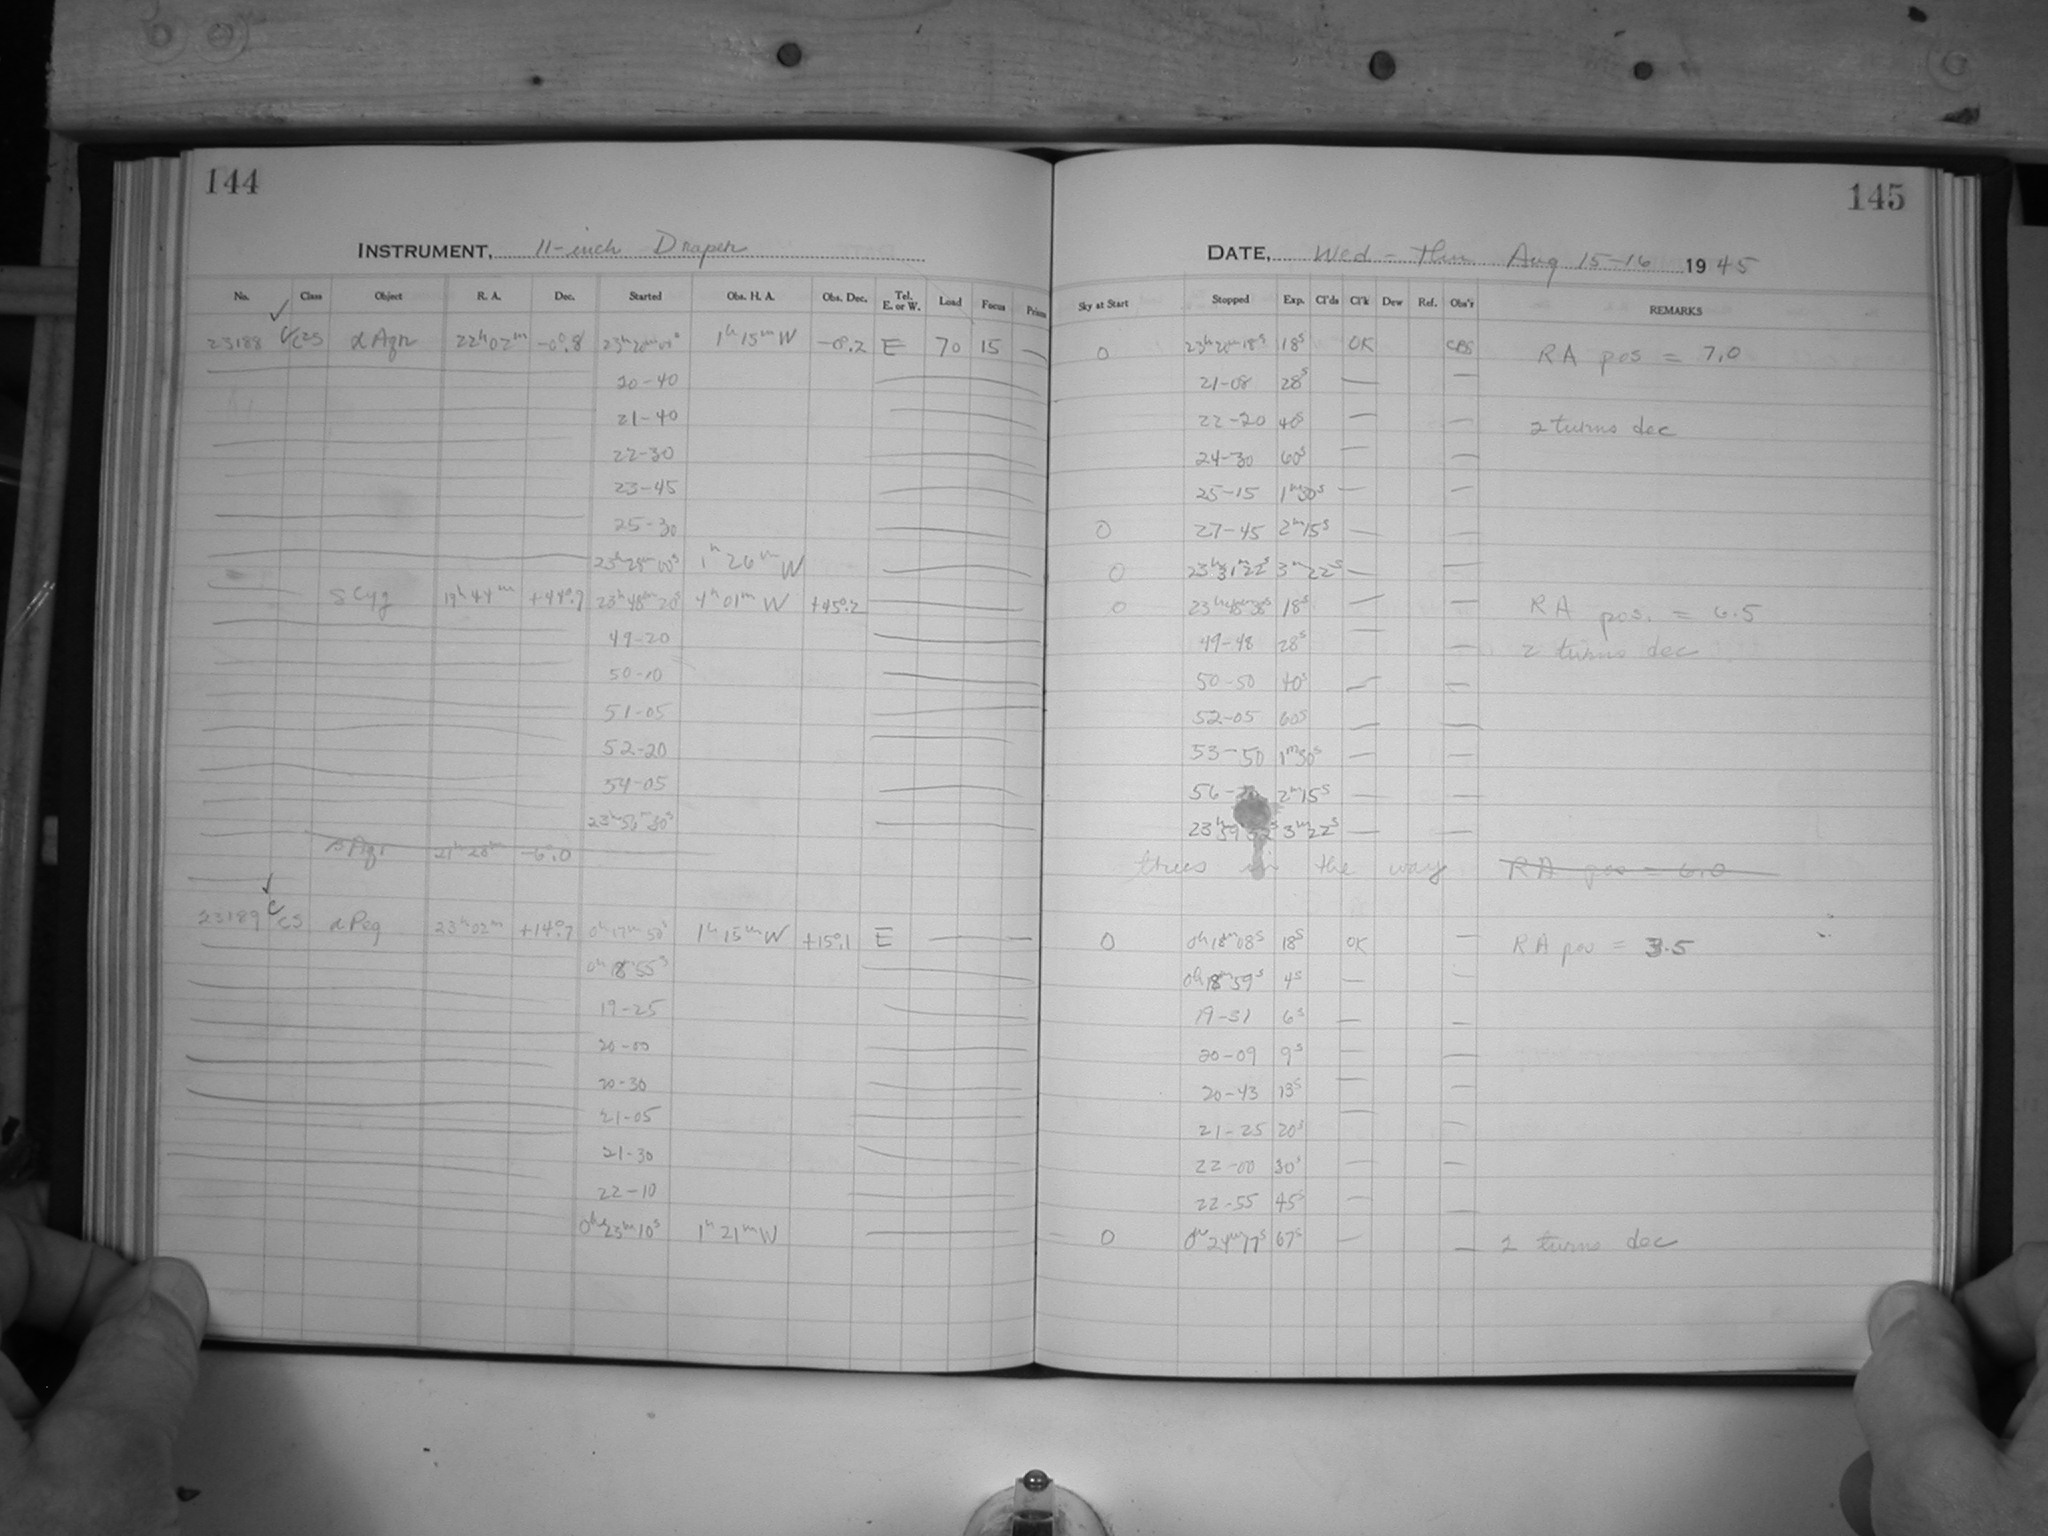 144
INSTRUMENT, 11-inch Draper
No. Class Object R. A. Dec. Started Obs. H. A. Obs. Dec. Tel. E. or W. Load Focus Prism
23188 α Aqr 22h 02m -0°.8 1h 15m W -0°.2 E 70 15
20-40
21-40
22-30
23-45
25-30
23h 28m 00s 1h 26m W
δ Cyg 19h 44m 23h 48m 20s 4h 01m W +45°.2
49-20
50-10
51-05
52-20
54-05
23h 56m 30s
β Aqr 21h 28m -6°.0
23189 CS α Peg 23h 02m +14°.7 0h 17m 50s 1h 15m W +15°.1 E
0h 18m 55s
19-25
20-00
20-30
21-05
21-30
22-10
0h 23m 10s 1h 21m W
145
DATE, Wed - Thu Aug 15-16 1945
Sky at Start Stopped Exp. Cl'ds Cl'k Dew Ref. Obs'r REMARKS
0 23h 20m 18s 18s OK RA pos = 7.0
21-08 28s
22-20 40s 2 turns dec
24-30 60s
25-15 1m30s
0 27-45 2m15s
0 23h 31m 22s 3m 22s
0 23h 48m 38s 18s RA pos. = 6.5
49-48 28s 2 turns dec
50-50 40s
52-05 60s
53-50 1m30s
56- 2m15s
23h 59m 3m22s
trees in the way RA pos = 6.0
0 0h 18m 08s 18s OK RA pos = 3.5
0h 18m 59s 4s
19-31 6s
20-09 9s
20-43 13s
21-25 20s
22-00 30s
22-55 45s
0 0h 24m 17s 67s 2 turns dec